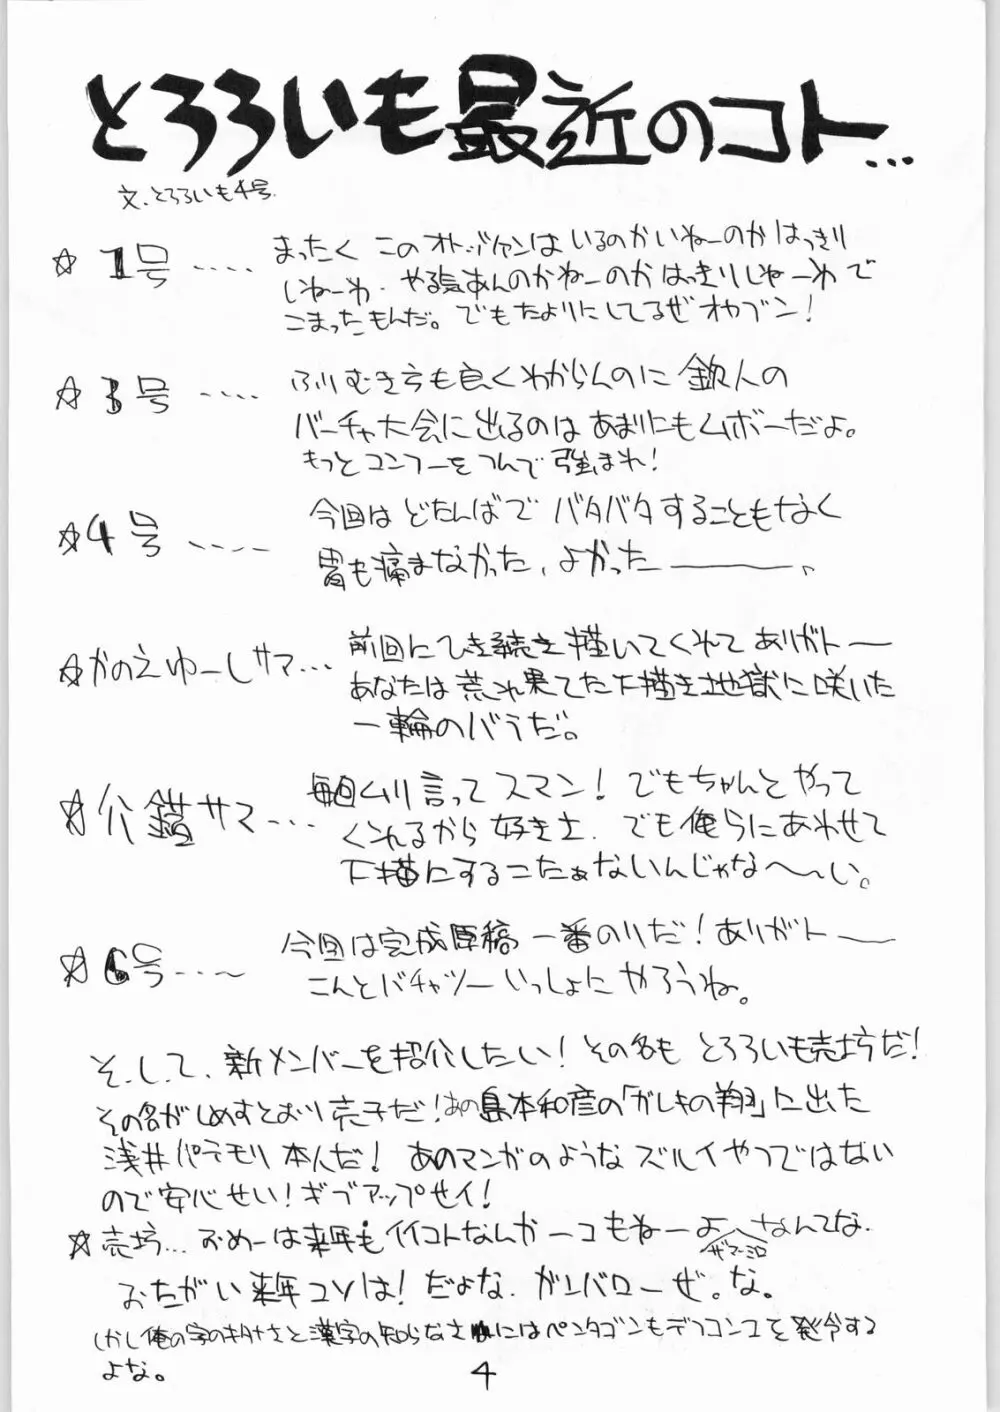 とろろいも最近のコト...
文.とろろいも4号.
☆1号.....まったく このオトッツァンはいるのかいねーのかはっきり
しねーわ.やる気あんのかねーのかはっきりしねーわで
こまったもんだ。でもたよりにしてるぜオヤブン!
☆3号.....ふりむき方も良くわからんのに 鉄人の
バーチャ大会に出るのはあまりにもムボーだよ。
もっとコンフーをつんで強まれ!
☆4号.....今回はどたんばでバタバタすることもなく
胃も痛まなかった、よかったー。
☆かのえゆーしサマ...前回にひき続き描いてくれてありガトー
あなたは荒れ果てた下描き地獄に咲いた
一輪のバラだ。
☆介錯サマ...毎回ムリ言ってスマン! でもちゃんとやって
くれるから好きさ. でも俺らにあわせて
下描にするこたぁないんじゃな〜〜い。
☆6号....今回は完成原稿一番のりだ!ありガトー
こんどバチャツーいっしょにやろうね。
そ.し.て、新メンバーを紹介したい! その名も とろろいも売坊だ!
その名がしめすとおり売子だ!あの島本和彦の「ガレキの翔」に出た
浅井パテモリ本人だ! あのマンガのようなズルイやつではない
ので安心せい!ギブアップせイ!
☆売坊...おめーは来年もイイコトなんか一コもねーよ なんてな.
ザマーミロ
おたがい来年コソは!だよな.ガンバローぜ。な。
しかし俺の字のキタナさと漢字の知らなさにはペンタゴンもデフコン2を発令する
よな。
4